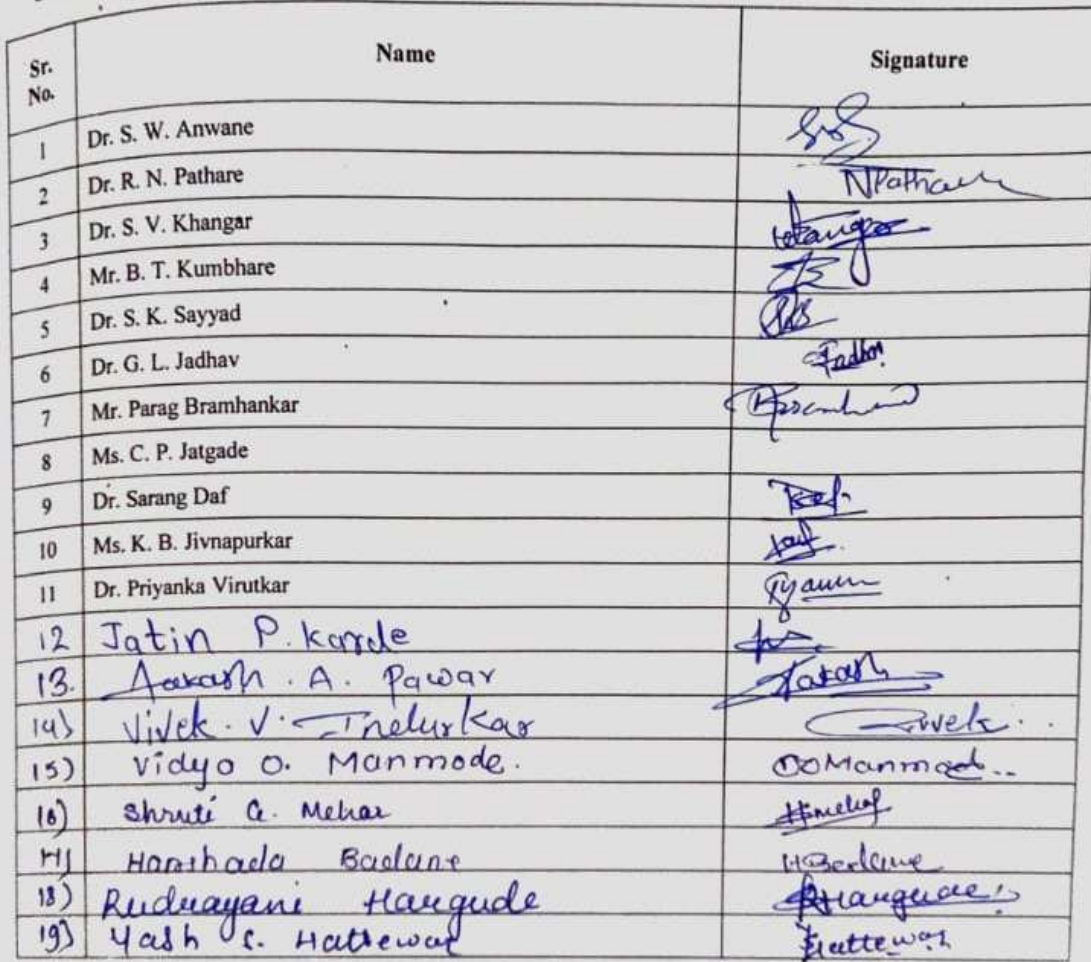 Sr. No. Name Signature
1 Dr. S. W. Anwane
2 Dr. R. N. Pathare NPathare
3 Dr. S. V. Khangar
4 Mr. B. T. Kumbhare
5 Dr. S. K. Sayyad
6 Dr. G. L. Jadhav
7 Mr. Parag Bramhankar
8 Ms. C. P. Jatgade
9 Dr. Sarang Daf
10 Ms. K. B. Jivnapurkar
11 Dr. Priyanka Virutkar
12 Jatin P. Karde
13. Aakash . A. Pawar Aakash
14) Vivek . V. Inelurkar Vivek.
15) Vidyo O. Manmode. OManmode..
16) Shruti G. Mehar
17) Harshada Badane HBadane
18) Rudrayani Hargude RHargude
19) Yash S. Hattewar Hattewar